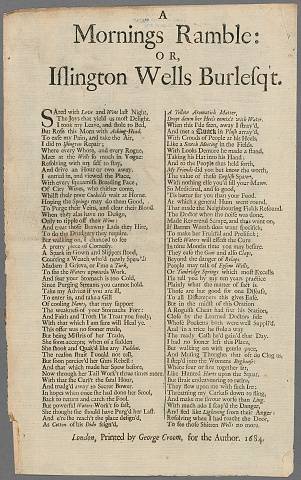 A
Mornings Ramble:
OR,
Islington Wells Burlesq't.
Sated with Love and Wine last Night,
The Joys that yield us most Delight,
I took my Leave, and stole to Bed,
But Rose this Morn with Aking-Head.
To ease my Pain, and take the Air,
I did to Islington Repair;
Where every Whore, and every Rogue,
Meet at the Wells so much in Vogue:
Resolving with my self to stay,
And drive an Hour or two away.
I enter'd in, and viewed the Place,
With every Squeamish Brawling Face,
Of City Wives, who thither come,
Whilst their poor Cuckolds wait at Home:
Hoping the Springs may do them Good,
To Purge their Veins, and clear their Blood
When they alas have no Design,
Only to tipple off their Wine:
And treat those Brawny Lads they Hire,
To do the Drudgery they require.
But walking on, I chanced to see
A pretty piece of Comedy.
A Spark in Gown and Slippers stood,
Courting a Wench
Madam I Vow, or Fore Gad,
To see the Waters upwards Work,
And fear your Stomach is too Cold,
Since Purging Streams you cannot hold.
Take my Advice if you are ill,
To enter in, and take a Gill
Of cooling Wine, that may support
The weakness of your Stomachs Fort:
And Faith and Troth I'll Treat you freely;
With that which I am sure will Heal ye.
This offer was no sooner made,
But being Mistress of her Trade,
She soon accepts; when of a sudden
She shook and Quak'd like any Pudden.
The reason strait I could not tell,
But soon perceiv'd her Guts Rebell:
And that which made her Spew before,
Now through her Tail Work's three times more.
With that the Cur's the fatal Hour,
And trudg'd away to Scowr Bower.
In hopes when once she had done her Stool,
Back to return and catch the Fool.
But powerful Waters Work't so fast,
She thought she should have Purg'd her Last.
And e're she reach't the place design'd,
As Cotton of his Dido feign'd,
A Yellow Aromatick Matter,
Dropt down her Heels
When this I'de seen, away I stray'd,
And met a Quack in Plush array'd,
With Crouds of People at his Heels,
Like a Starch Meeting in the Fields.
With Looks Demure he made a stand,
Taking his Hat into his Hand:
And to the People that held forth,
My Friends did you but know the worth,
The value of these English Spaws,
With nothing else you'd fill your Maws.
So Medicinal, and so good,
No better for you understood.
At which a general Hum went round,
That made the Neighbouring Fields Resound.
The Doctor when the noise was done,
Made Reverend Scrape, and thus went on,
If Barren Womb does want specifick,
To make her Fruitful and Prolifick;
These Waters will effect the Cure
In some Months time you may be sure.
They ease the Gout and also Clap,
Beyond the danger of Relaps:
People may talk of Epsom Wells,
Or Tunbridge Springs which most Excells
I'll tell you by my ten years practice
Plainly what the matter of fact is.
Those are but good for one Disease,
To all Distempers this gives Ease.
But in the midst of this Oration
A Roguish Cheat had fixt his Station,
Close by the Learned Doctors side
Whose Pockets both were well Supply'd.
And in a trice he strikes away
The ready Cash he'd gain'd that Day.
I had no sooner left this Place,
But walking on with gentle pace,
And Musing Thoughts that oft do Clog us,
I stept into the Womens Bogg-house:
Where four or five together sat,
Like Hatted Jews upon the Squat.
But strait endeavouring to retire,
They flew upon me with such Ire:
Threatning my Carkass down to fling,
And make me savour worse than Ling.
With much ado I scap'd the Danger,
And fled like Lightning from their Anger:
Resolving when I had reach't the Door,
To see those Shitten Wells no more.
London, Printed by George Croom, for the Author. 1684.